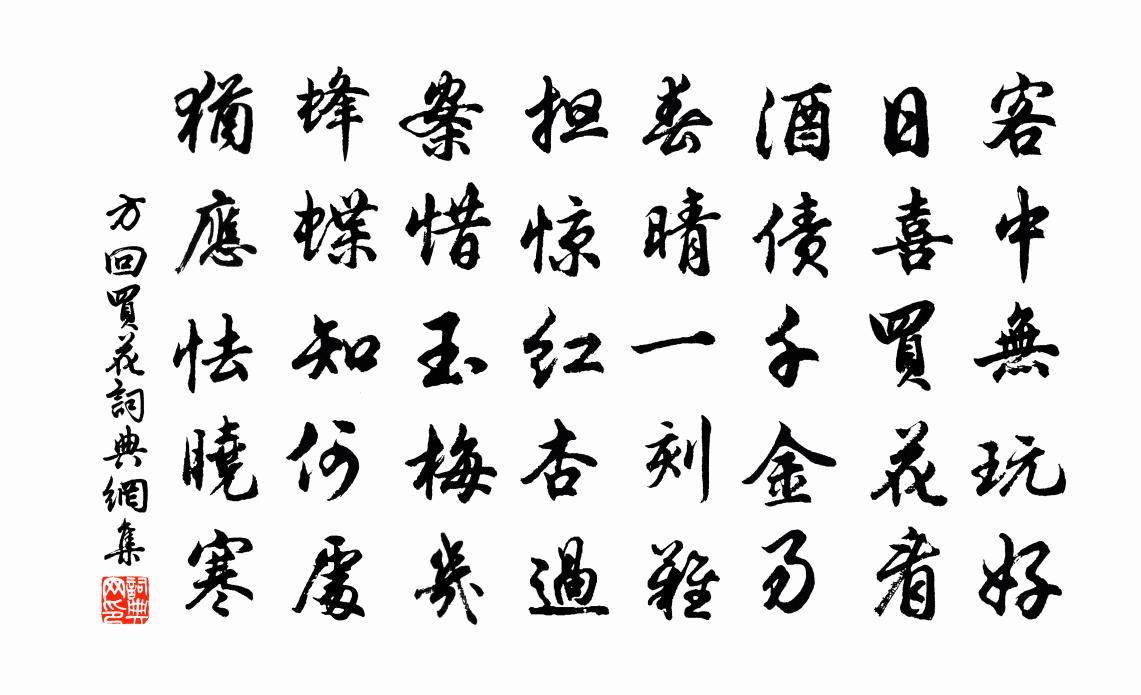 客中無玩好
日喜買花看
酒债千金易
春晴一刻難
担惊红杏過
案惜玉梅幾
蜂蝶知何處
猶應怯曉寒
方回買花詞典網集